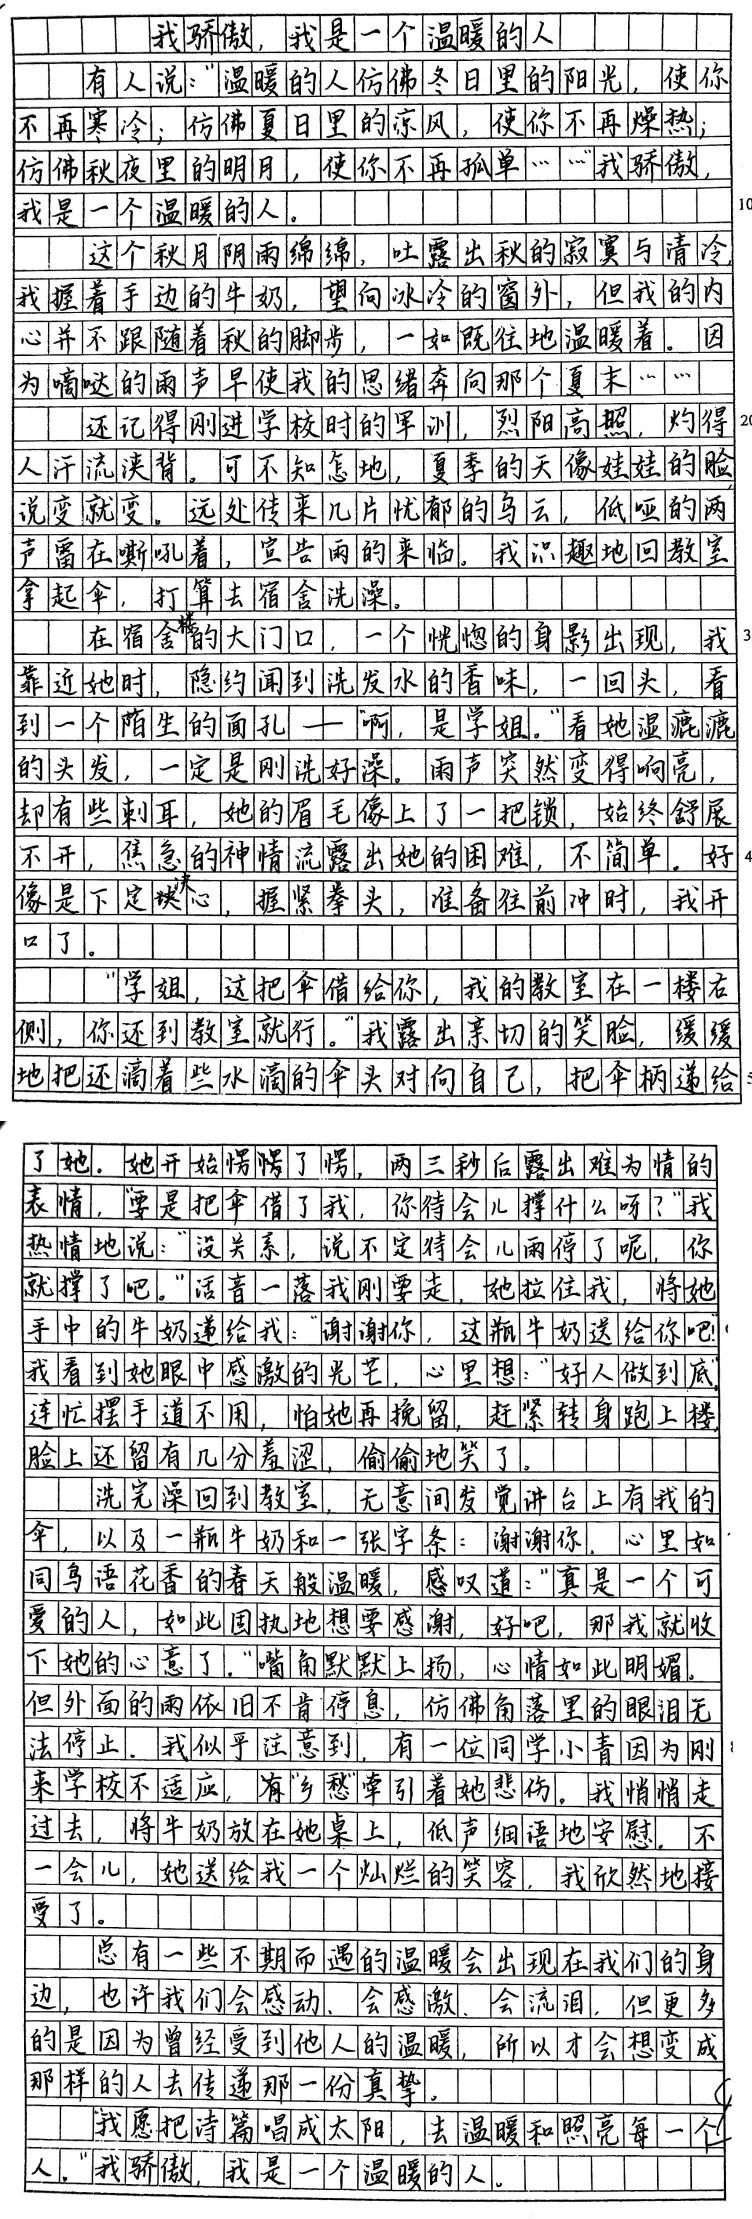 我骄傲，我是一个温暖的人
有人说：“温暖的人仿佛冬日里的阳光，使你
不再寒冷；仿佛夏日里的凉风，使你不再燥热；
仿佛秋夜里的明月，使你不再孤单……”我骄傲，
我是一个温暖的人。
10
这个秋月阴雨绵绵，吐露出秋的寂寞与清冷，
我握着手边的牛奶，望向冰冷的窗外，但我的内
心并不跟随着秋的脚步，一如既往地温暖着。因
为嘀哒的雨声早使我的思绪奔向那个夏末……
还记得刚进学校时的军训，烈阳高照，灼得
20
人汗流浃背。可不知怎地，夏季的天像娃娃的脸，
说变就变。远处传来几片忧郁的乌云，低哑的两
声雷在嘶吼着，宣告雨的来临。我识趣地回教室
拿起伞，打算去宿舍洗澡。
在宿舍楼的大门口，一个恍惚的身影出现，我
3
靠近她时，隐约闻到洗发水的香味，一回头，看
到一个陌生的面孔——“啊，是学姐。”看她湿漉漉
的头发，一定是刚洗好澡。雨声突然变得响亮，
却有些刺耳，她的眉毛像上了一把锁，始终舒展
不开，焦急的神情流露出她的困难，不简单。好
4
像是下定决心，握紧拳头，准备往前冲时，我开
口了。
“学姐，这把伞借给你，我的教室在一楼右
侧，你还到教室就行。”我露出亲切的笑脸，缓缓
地把还滴着些水滴的伞头对向自己，把伞柄递给
5
了她。她开始愣愣了愣，两三秒后露出难为情的
表情，“要是把伞借了我，你待会儿撑什么呀？”我
热情地说：“没关系，说不定待会儿雨停了呢，你
就撑了吧。”话音一落我刚要走，她拉住我，将她
手中的牛奶递给我：“谢谢你，这瓶牛奶送给你吧！”
我看到她眼中感激的光芒，心里想：“好人做到底”，
连忙摆手道不用，怕她再挽留，赶紧转身跑上楼，
脸上还留有几分羞涩，偷偷地笑了。
洗完澡回到教室，无意间发觉讲台上有我的
伞，以及一瓶牛奶和一张字条：谢谢你，心里如
同鸟语花香的春天般温暖，感叹道：“真是一个可
爱的人，如此固执地想要感谢，好吧，那我就收
下她的心意了。”嘴角默默上扬，心情如此明媚。
但外面的雨依旧不肯停息，仿佛角落里的眼泪无
法停止。我似乎注意到，有一位同学小青因为刚
8
来学校不适应，有“乡愁”牵引着她悲伤。我悄悄走
过去，将牛奶放在她桌上，低声细语地安慰。不
一会儿，她送给我一个灿烂的笑容，我欣然地接
受了。
总有一些不期而遇的温暖会出现在我们的身
边，也许我们会感动、会感激、会流泪，但更多
的是因为曾经受到他人的温暖，所以才会想变成
那样的人去传递那一份真挚。
“我愿把诗篇唱成太阳，去温暖和照亮每一个
人。”我骄傲，我是一个温暖的人。